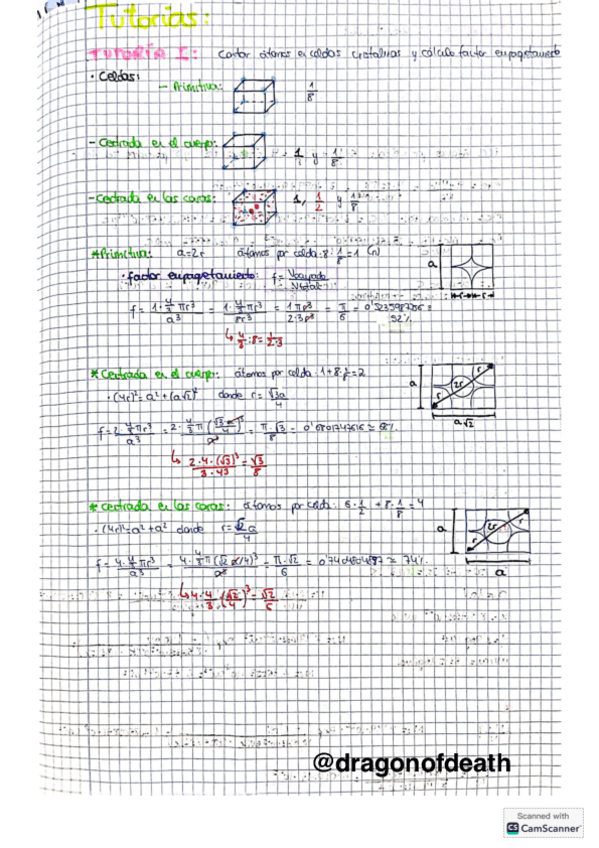 Tutorías:
TUTORÍA I: Contar átomos en celdas cristalinas y cálculo factor empaquetamiento
• Celdas:
- Primitiva: 1/8
- Centrada en el cuerpo: 1/1 y 1/8
- Centrada en las caras: 1, 1/2 y 1/8
* Primitiva: a=2r átomos por celda: 8·1/8=1 (N)
a
• factor empaquetamiento: f= Vocupado/Vtotal
f= 1·4/3πr³/a³ = 1·4/3πr³/8r³ = 1πr³/2·3r³ = π/6 = 0'523598756 = 52%
↳ 4/3:8=1/2·3
* Centrada en el cuerpo: átomos por celda: 1+8·1/8=2
• (4r)²=a²+(a√2)² donde r=√3a/4
a r 2r r
a√2
f= 2·4/3πr³/a³ = 2·4/3π(√3a/4)³/a³ = π·√3/8 = 0'6801747616 ≈ 68%
↳ 2·4·(√3)³/3·43 = √3/8
* Centrada en las caras: átomos por celda: 6·1/2 + 8·1/8=4
• (4r)²=a²+a² donde r=√2a/4
a r 2r r
a
f= 4·4/3πr³/a³ = 4·4/3π(√2a/4)³/a³ = π·√2/6 = 0'740480487 ≈ 74%
↳ 4·4/3·(√2/4)³=√2/6
@dragonofdeath
Scanned with
CS CamScanner